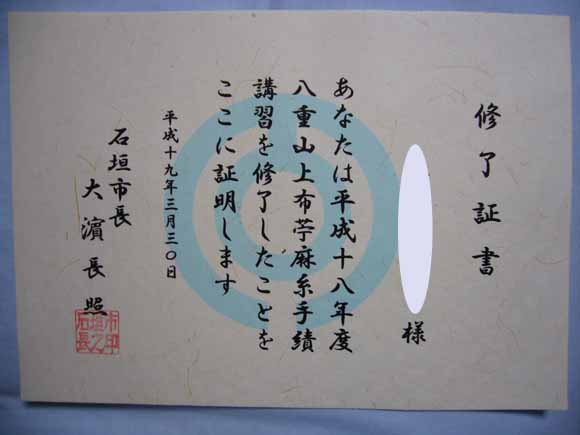 修了証書
様
あなたは平成十八年度
八重山上布苧麻糸手績
講習を修了したことを
ここに証明します
平成十九年三月三〇日
石垣市長
大濵長照